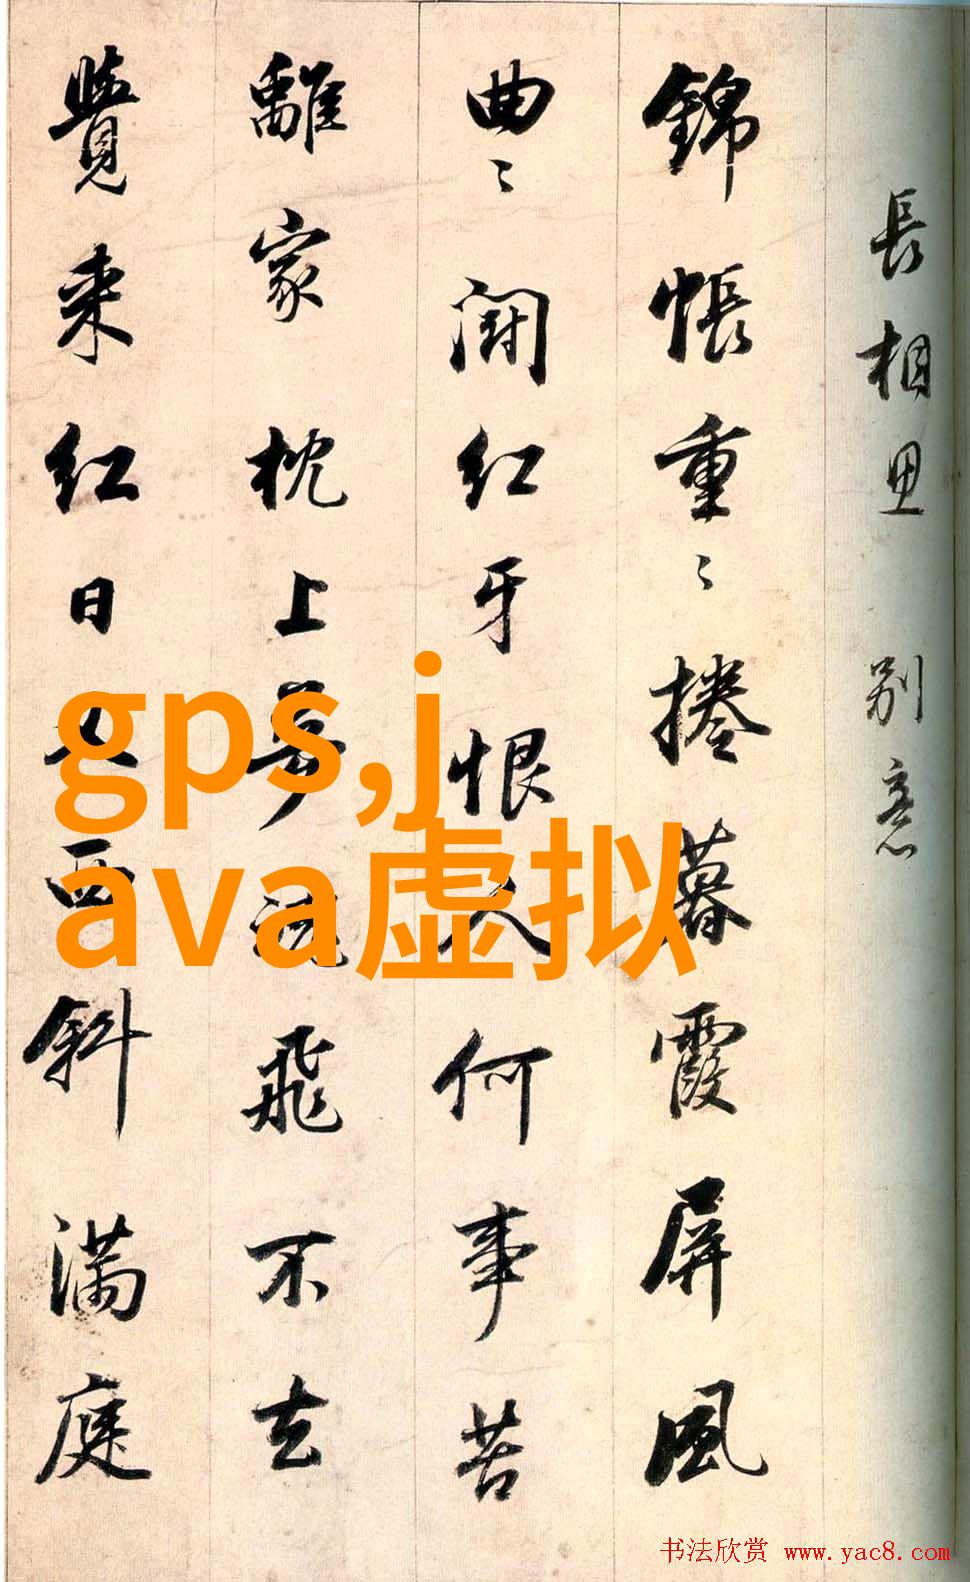 長相思 別意
錦帳重〻捲暮霞屏風
曲〻閗紅牙恨人何事苦
離家枕上夢飛不去
覺来紅日又西斜滿庭
gps,j
ava虚拟
书法欣赏 www.yac8.com